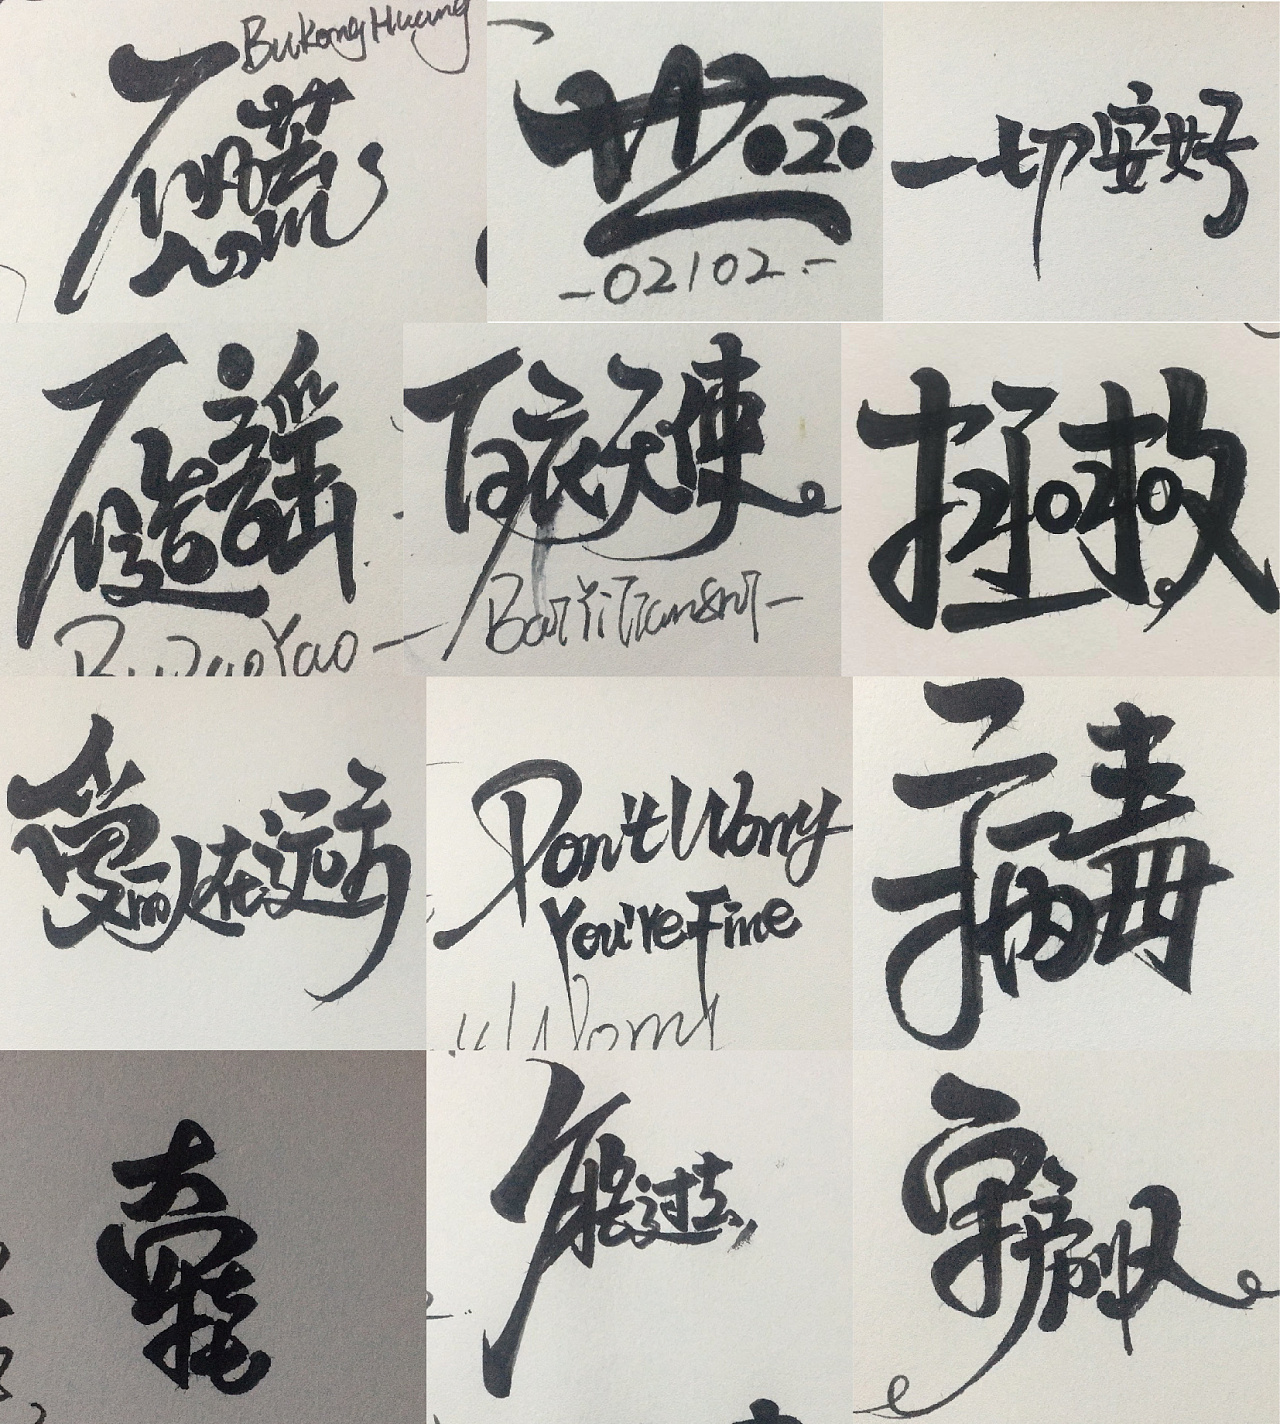 BuKongHuang
不恐慌
020
-02102.-
一切安好
不造谣
BuZaoYao
白衣天使
BaiYiTianshi
拯救
2020
人在远方
Don't Worry
You're Fine
病毒
能过去